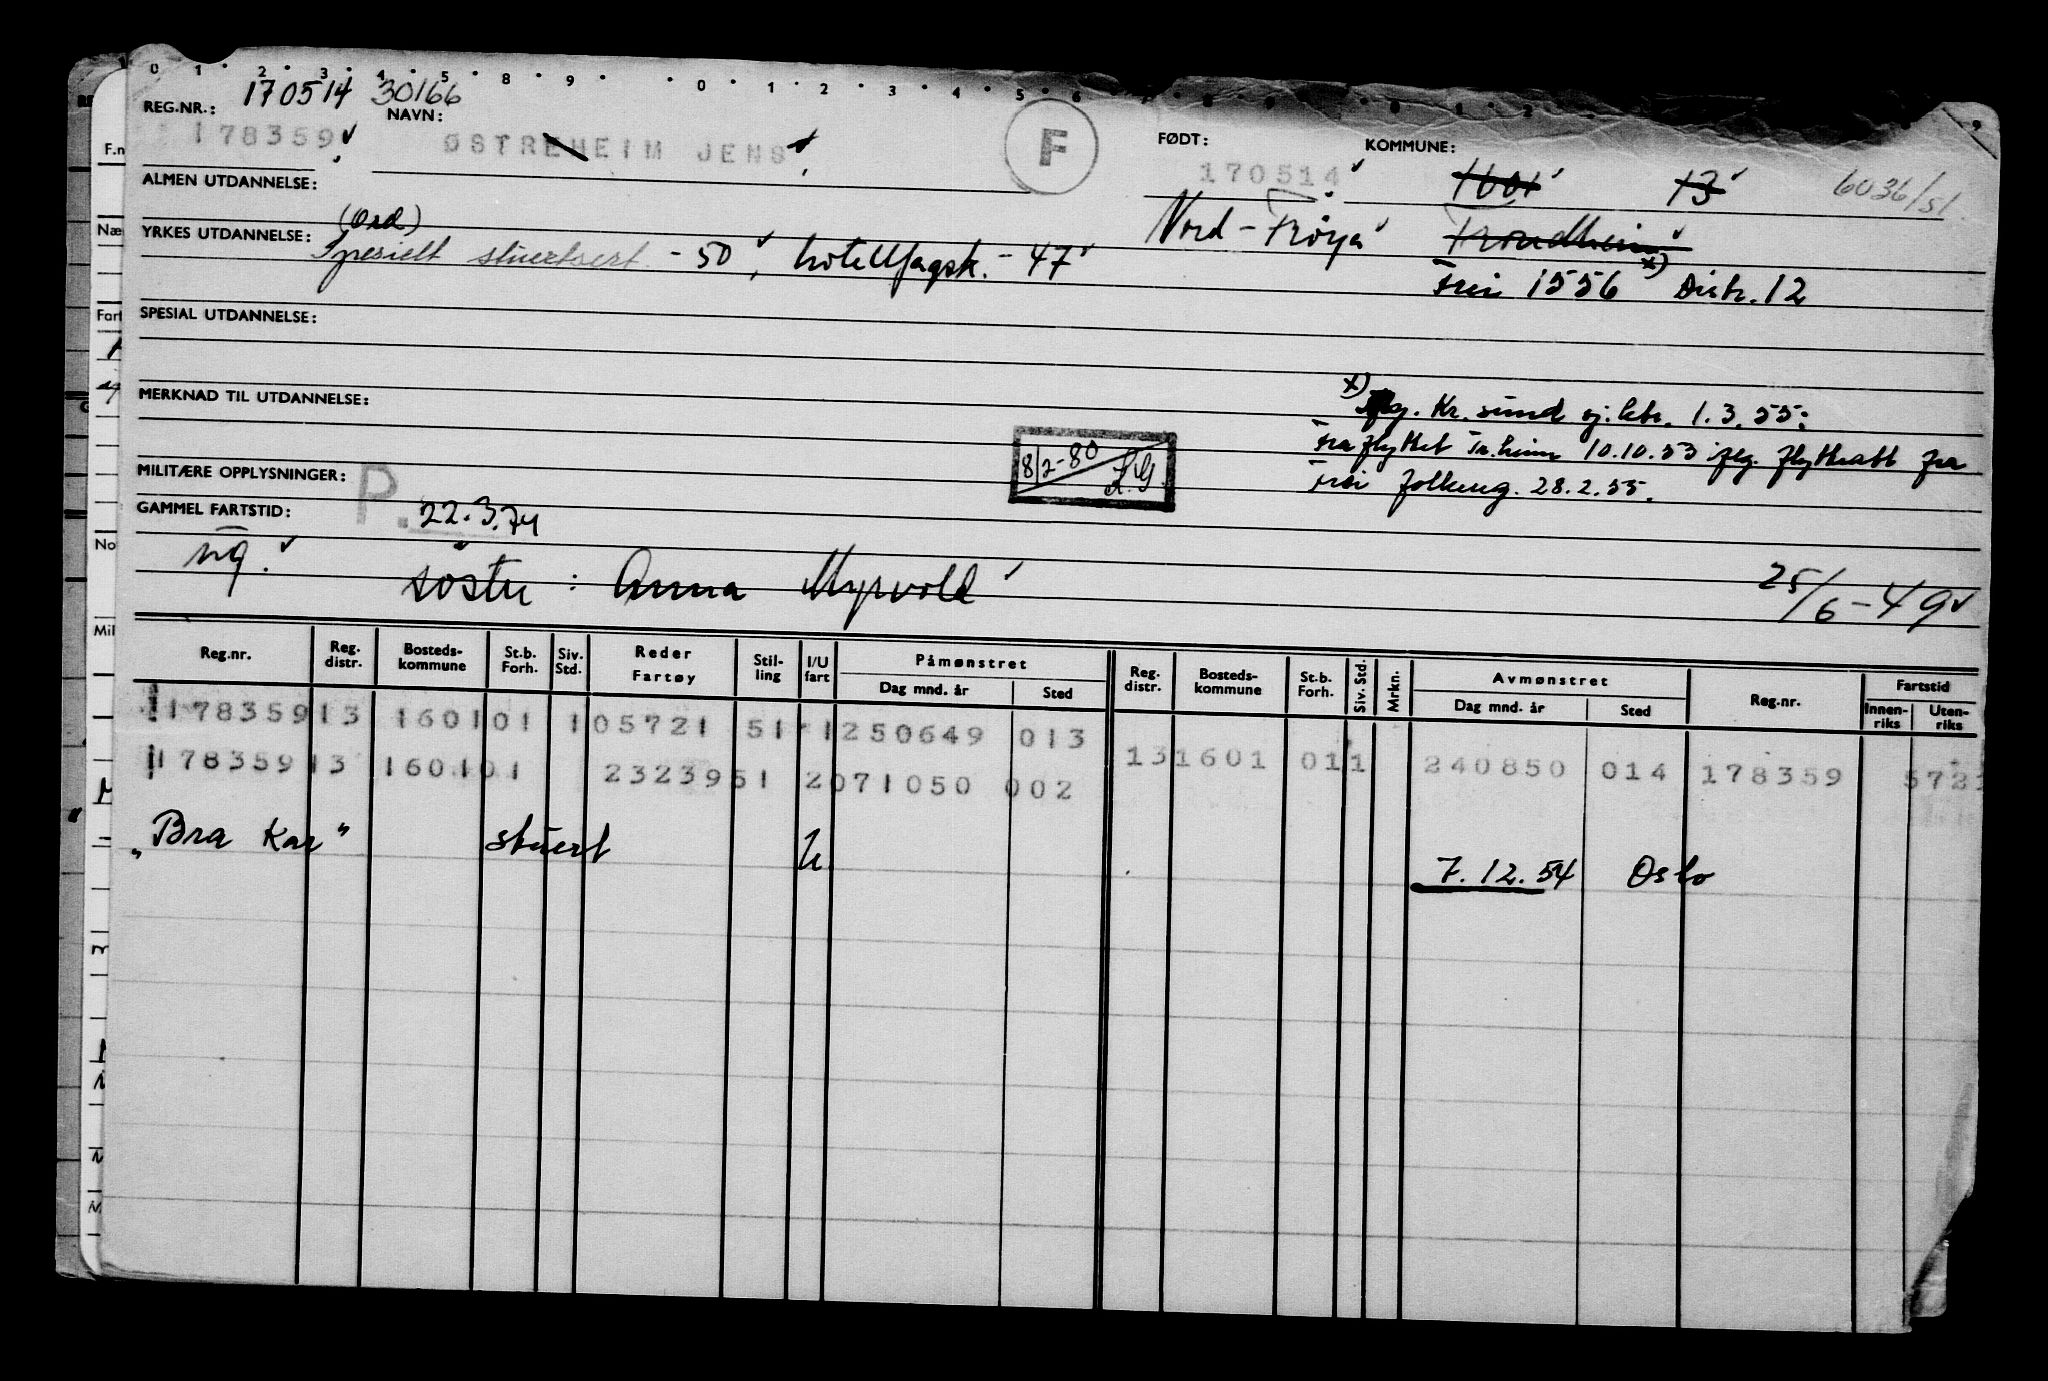 0 1 2 3 4 5 8 9 0 1 2 3 4 5 6
170514 30166
REG.NR.: NAVN: FØDT: KOMMUNE:
178359 ØSTREHEIM JENS F 170514 1601 13 6036/51
ALMEN UTDANNELSE:
(Ord) Nord-Frøya Trondheim x)
YRKES UTDANNELSE: Spesielt stuertsert - 50, hotellfagsk. - 47
Frei 1556 Distr. 12
SPESIAL UTDANNELSE:
MERKNAD TIL UTDANNELSE:
x) Kr. sund 1.3.55:
Fraflyttet Tr.heim 10.10.53 flytteatt fra
Frei folkereg. 28.2.55.
8/2-80 K.G.
MILITÆRE OPPLYSNINGER: P.
GAMMEL FARTSTID: 22.3.74
ng. søster : Anna Myrvold 25/6-49
Reg.nr. Reg. distr. Bosteds-kommune St.b. Forh. Siv. Std. Reder Fartøy Stil-ling I/U fart Påmønstret Dag mnd. år Sted Reg. distr. Bosteds-kommune St.b. Forh. Siv. Std. Mrkn. Avmønstret Dag mnd. år Sted Reg.nr. Fartstid Innen-riks Uten-riks
178359 13 1601 01 1 05721 51 1 250649 013 13 1601 01 1 240850 014 178359 572
178359 13 1601 01 23239 51 2 071050 002
"Bra Kar" stuert U 7.12.54 Oslo